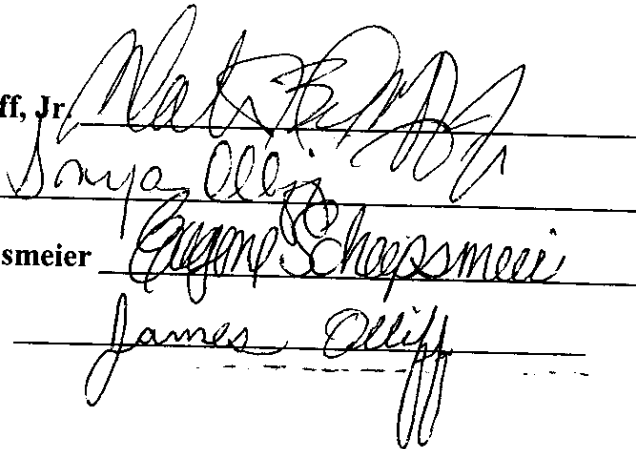 ff, Jr.
Sonya Olliff
smeier Eugene Schepsmeier
James Olliff